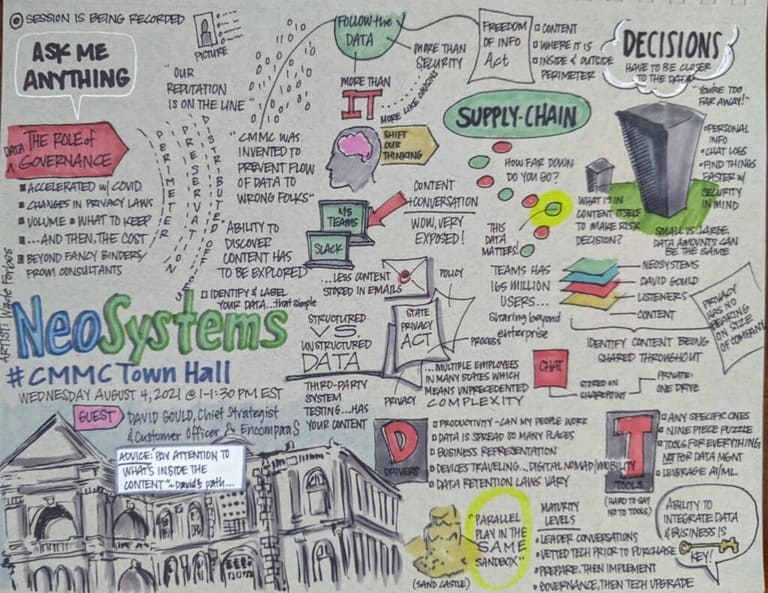 SESSION IS BEING RECORDED
ASK ME
ANYTHING
PICTURE
"OUR
REPUTATION
IS ON THE LINE"
FOLLOW the
DATA
MORE THAN
SECURITY
MORE THAN
IT
MORE LIKE
FREEDOM
OF INFO
Act
CONTENT
WHERE IT IS
INSIDE & OUTSIDE
PERIMETER
DECISIONS
HAVE TO BE CLOSER
TO THE DATA
"YOU'RE TOO
FAR AWAY!"
PERSONAL
INFO
CHAT LOGS
FIND THINGS
FASTER w/
SECURITY
IN MIND
SMALL IS LARGE
DATA AMOUNTS CAN
BE THE SAME
DATA
THE ROLE of
GOVERNANCE
ACCELERATED w/ COVID
CHANGES IN PRIVACY LAWS
VOLUME & WHAT TO KEEP
...AND THEN, THE COST
BEYOND FANCY BINDERS
FROM CONSULTANTS
PERIMETER
DISTRIBUTED
"CMMC WAS
INVENTED TO
PREVENT FLOW
OF DATA TO
WRONG FOLKS"
SHIFT
OUR
THINKING
SUPPLY-CHAIN
HOW FAR DOWN
DO YOU GO?
THIS
DATA
MATTERS!
WHAT IS IN
CONTENT ITSELF
TO MAKE RISK
DECISION?
"ABILITY TO
DISCOVER
CONTENT HAS
TO BE EXPLORED
IDENTIFY & LABEL
YOUR DATA...that simple
MS
TEAMS
SLACK
CONTENT
+CONVERSATION
WOW, VERY
EXPOSED!
...LESS CONTENT
STORED IN EMAILS
TEAMS HAS
165 MILLION
USERS...
sharing beyond
enterprise
NEOSYSTEMS
DAVID GOULD
LISTENERS
CONTENT
IDENTIFY CONTENT BEING
SHARED THROUGHOUT
PRIVACY
HAS NO
BEARING
ON SIZE
OF COMPANY
ARTIST: Wade Forbes
NeoSystems
#CMMC Town Hall
WEDNESDAY AUGUST 4, 2021 @ 1-1:30 PM EST
STRUCTURED
VS.
UNSTRUCTURED
DATA
POLICY
STATE
PRIVACY
ACT
PROCESS
PRIVACY
...MULTIPLE EMPLOYEES
IN MANY STATES WHICH
MEANS UNPRECEDENTED
COMPLEXITY
THIRD-PARTY
SYSTEM
TESTING...HAS
YOUR CONTENT
CHAT
STORED ON
SHAREPOINT
PRIVATE:
ONE DRIVE
GUEST
DAVID GOULD, Chief Strategist
& Customer Officer @ EncompaaS
ADVICE: PAY ATTENTION TO
WHAT'S INSIDE THE
CONTENT" ~ David's path...
D
DRIVERS
PRODUCTIVITY - CAN MY PEOPLE WORK
DATA IS SPREAD SO MANY PLACES
BUSINESS REPRESENTATION
DEVICES TRAVELING...DIGITAL NOMAD/MOBILITY
DATA RETENTION LAWS VARY
T
TOOLS
(HARD TO SAY
NO TO TOOLS)
ANY SPECIFIC ONES
NINE PIECE PUZZLE
TOOLS FOR EVERYTHING
NOT FOR DATA MGNT
LEVERAGE AI/ML
(SAND CASTLE)
"PARALLEL
PLAY IN THE
SAME
SANDBOX"
MATURITY
LEVELS
LEADER CONVERSATIONS
VETTED TECH PRIOR TO PURCHASE
PREPARE, THEN IMPLEMENT
GOVERNANCE, THEN TECH UPGRADE
ABILITY TO
INTEGRATE DATA
& BUSINESS IS
KEY!